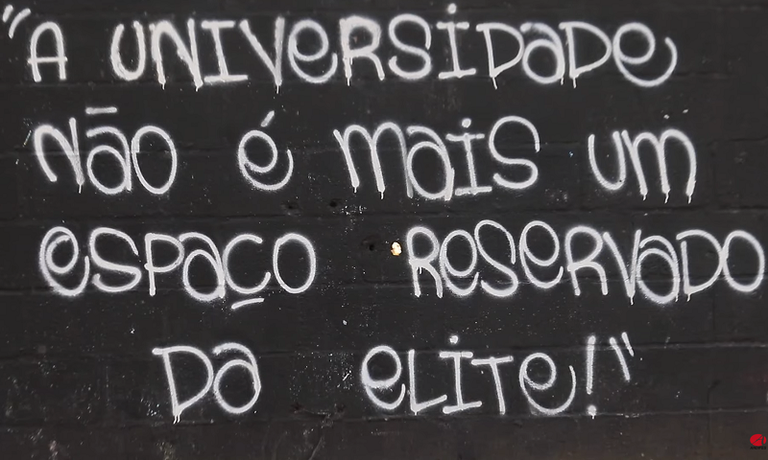 "A UNIVERSIDADE
NÃO É MAIS UM
ESPAÇO RESERVADO
DA ELITE!"